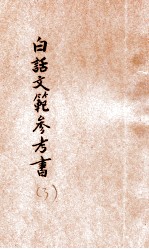 白話文範參考書
(3)